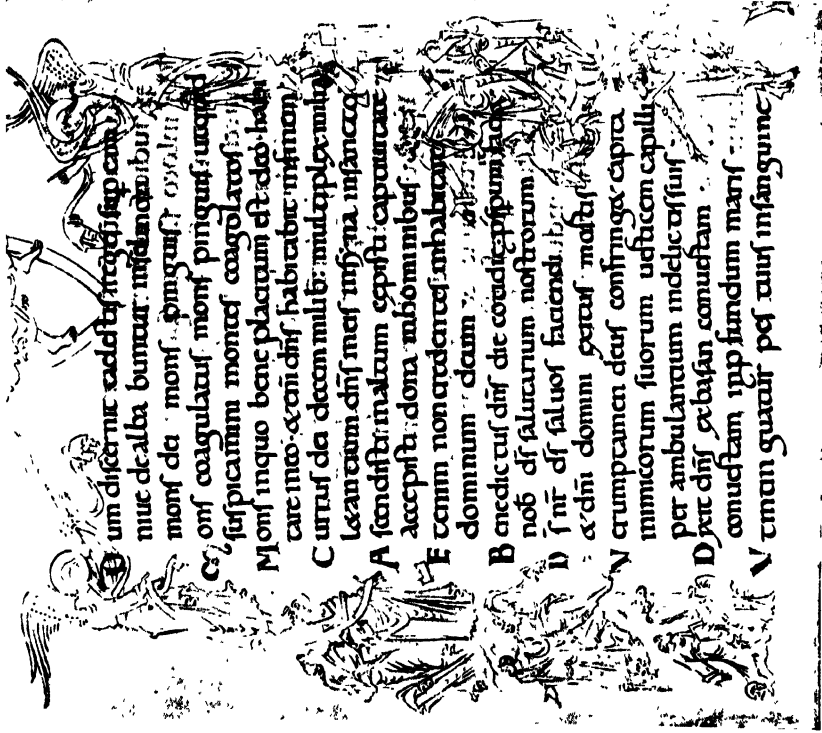 Dum discernit caelestis reges sup eam
niue dealba buntur inselmon
mons dei mons pinguis
Mons coagulatus mons pinguis utquid
suspicamini montes coagulatos
Mons inquo bene placitum est deo habi
tare ineo & eni dns habitabit infinem
Currus dei decem milib: multiplex milia
laetantium dns ineis insyna insancto
Ascendisti inaltum cepisti captiuitate
accepisti dona inhominibus
Etenim non credentes inhabitare
dominum deum
Benedictus dns die cotidie pspum
nob ds salutarium nostrorum
Ds nr ds saluos faciendi
& dni domini exitus mortis
Verumptamen deus confringet capita
inimicorum suorum uerticem capilli
per ambulantium indelictis suis
Dixit dns exbasan conuertam
conuertam inpfundum maris
Vt intin guatur pes tuus insanguine